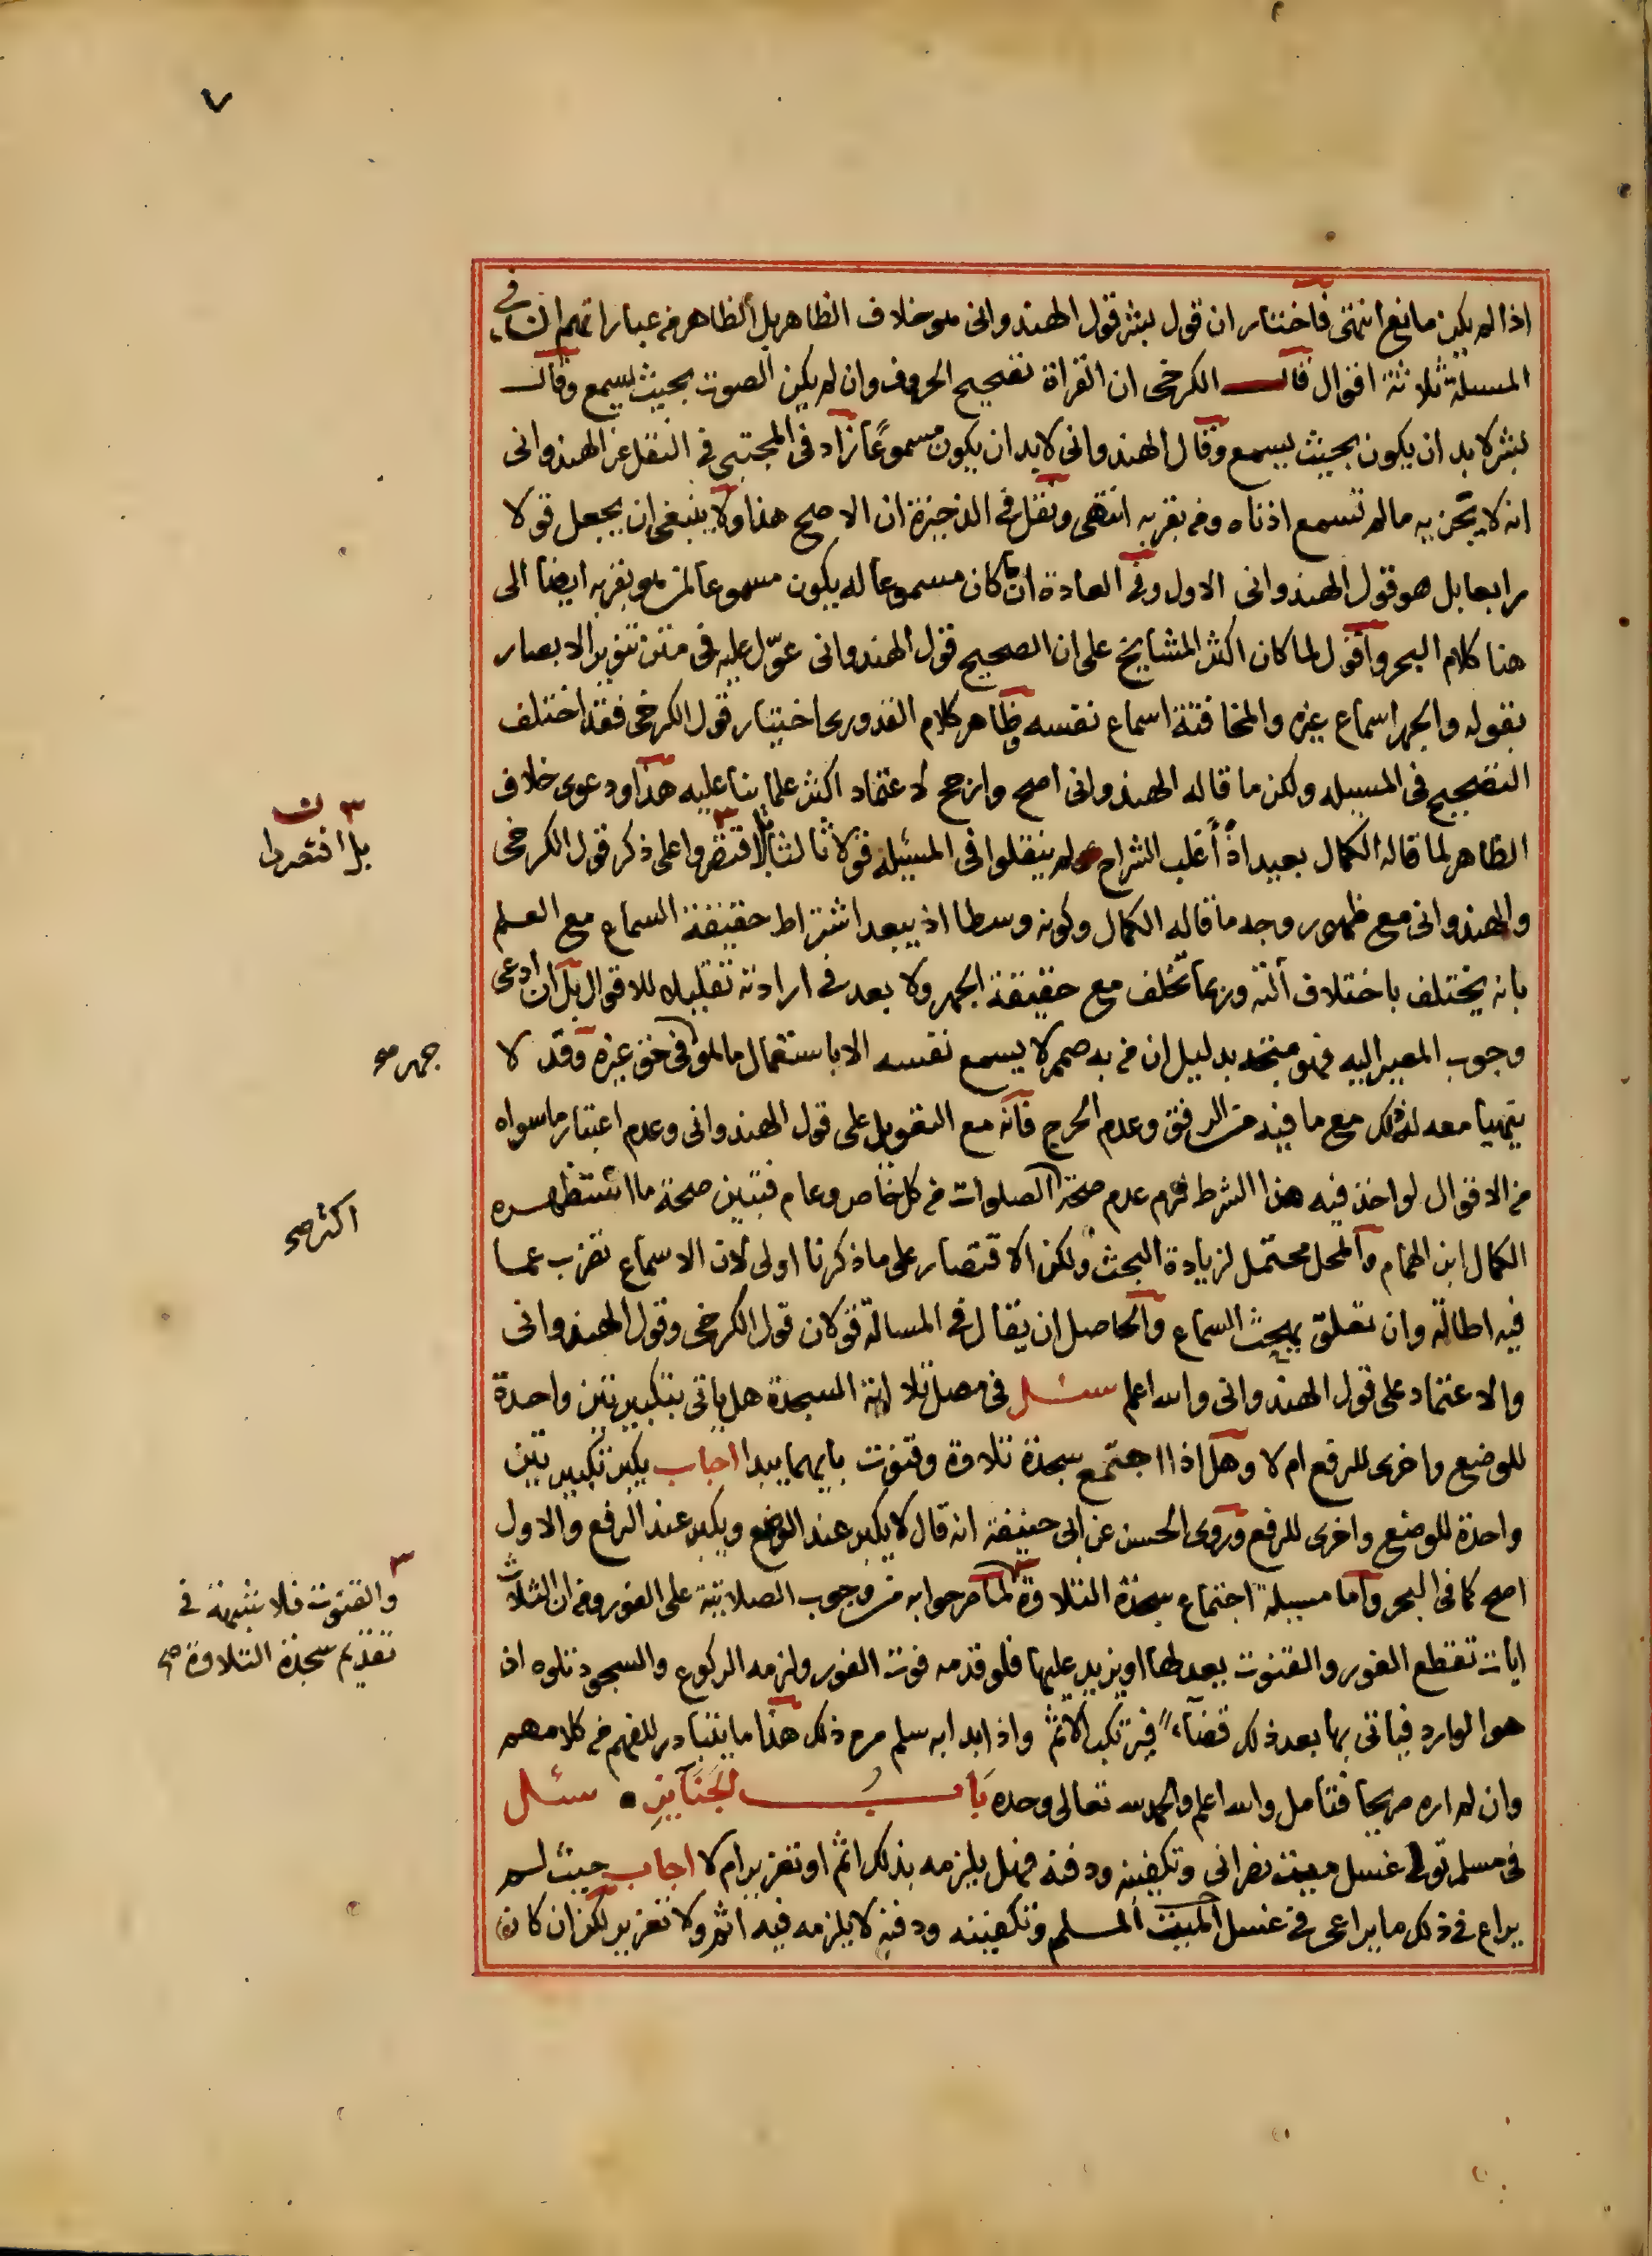 ٧
اذا لم يكن مانع انتهى فاختار ان قول بشر قول الهندوانى وهو خلاف الظاهر بل الظاهر من عباراتهم ان فى
المسئلة ثلاثة اقوال قال الكرخى ان القراة تصحيح الحروف وان لم يكن الصوت بحيث يسمع وقال
بشر لا بد ان يكون بحيث يسمع وقال الهندوانى لا بد ان يكون مسموعًا زاد فى المجتبى فى النقل عن الهندوانى
انه لا يجزيه مالم تسمع اذناه ومن بقربه انتهى ونقل فى الذخيرة ان الاصح هذا ولا ينبغى ان يجعل قولا
رابعا بل هو قول الهندوانى الاول وفى العادة ان ما كان مسموعا له يكون مسموعا لمن هو بقربه ايضا الى
هنا كلام البحر واقول لما كان اكثر المشايخ على ان الصحيح قول الهندوانى عوّل عليه فى متن تنوير الابصار
بقوله والجهر اسماع غيره والمخافتة اسماع نفسه وظاهر كلام القدورى اختيار قول الكرخى فقد اختلف
التصحيح فى المسيله ولكن ما قاله الهندوانى اصح وارجح لاعتماد اكثر علمائنا عليه هذا ودعوى خلاف
الظاهر لما قاله الكمال بعيد اذ أغلب الشراح لم ينقلوا فى المسئلة قولا ثالثا بل اقتصروا على ذكر قول الكرخى
والهندوانى مع ظهور وجه ما قاله الكمال وكونه وسطا اذ يبعد اشتراط حقيقة السماع مع العلم
بانه يختلف باختلاف آلته وربما تخلف مع حقيقة الجهر ولا بعد فى ارادته تقليلا للاقوال بل ان ادعى
وجوب المصير اليه فهو متجه بدليل ان من به صمم لا يسمع نفسه الا باستعمال ما هو فى حق غيره وقد لا
يتهيا معه لذلك مع ما فيه من الرفق وعدم الحرج فانه مع التعويل على قول الهندوانى وعدم اعتبار ما سواه
من الاقوال لو اخذ فيه هذا الشرط لزم عدم صحة الصلوات من كل خاص وعام فتبين صحة ما استظهره
الكمال ابن الهمام والمحل محتمل لزيادة البحث ولكن الاقتصار على ما ذكرنا اولى لان الاسماع تضرب عما
فيه اطالة وان تعلق بمبحث السماع والحاصل ان يقال فى المسالة قولان قول الكرخى وقول الهندوانى
والاعتماد على قول الهندوانى والله اعلم سئل فى مصل تلا اية السجدة هل ياتى بتكبيرتين واحدة
للوضع واخرى للرفع ام لا وهل اذا اجتمع سجدة تلاوة وقنوت بايهما يبدا اجاب يكبر تكبيرتين
واحدة للوضع واخرى للرفع وروى الحسن عن ابى حنيفة انه قال لا يكبر عند الوضع ويكبر عند الرفع والاول
اصح كما فى البحر واما مسيلة اجتماع سجدة التلاوة لما مر جوابه من وجوب الصلاتية على الفور ومن ان الثلاث
ايات تقطع الفور والقنوت يعدلها او يزيد عليها فلو قدمه فوت الفور ولزمه الركوع والسجود تلوه اذ
هو الوارد فياتى بها بعد ذلك قضآء فيرتكب الاثم واذا بدا به سلم من ذلك هذا ما يتبادر للفهم من كلامهم
وان لم اره صريحا فتامل والله اعلم والحمد لله تعالى وحده بَابُ الجَنَآيزِ سئل
فى مسلم تولى غسل ميت نصرانى وتكفينه ودفنه فهل يلزمه بذلك اثم او تعزير ام لا اجاب حيث لم
يراع فى ذلك ما يراعى فى غسل الميت المسلم وتكفينه ودفنه لا يلزمه فيه اثم ولا تعزير لكن ان كان
بل اقتصروا
جهر صح
اكثر صح
والقنوت فلا شبهة فى
تقديم سجدة التلاوة صح